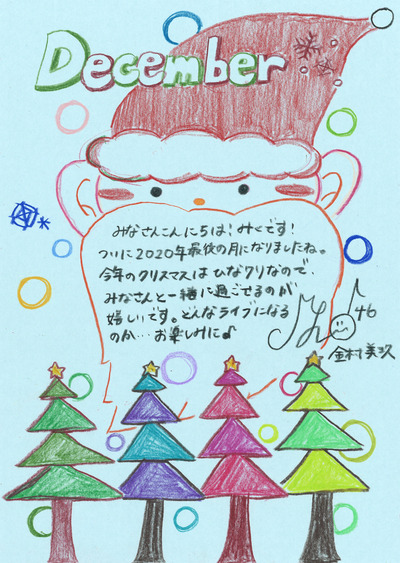 December
みなさんこんにちは！みくです！
ついに2020年最後の月になりましたね。
今年のクリスマスはひなクリなので、
みなさんと一緒に過ごせるのが
嬉しいです。どんなライブになる
のか…お楽しみに♪
46
金村美玖